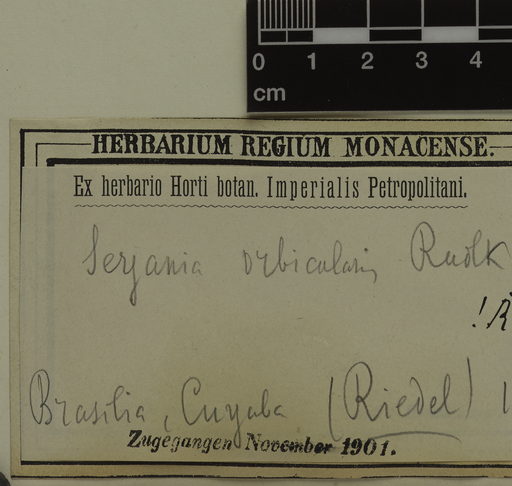 0 1 2 3 4
cm
HERBARIUM REGIUM MONACENSE.
Ex herbario Horti botan. Imperialis Petropolitani.
Serjania orbicularis Radlk
! R
Brasilia, Cuyaba (Riedel) 1
Zugegangen November 1901.